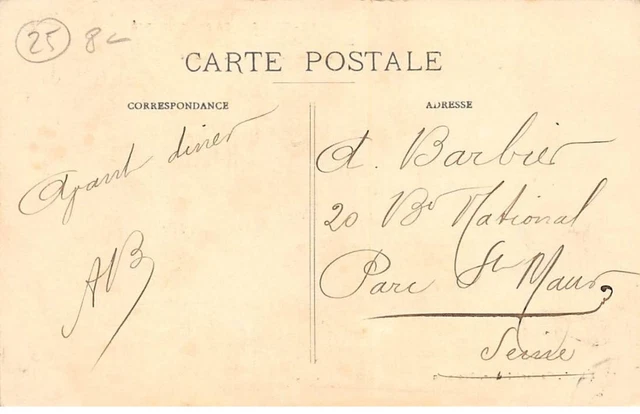 25 8
CARTE POSTALE
CORRESPONDANCE
ADRESSE
diner
AB
A. Barbier
20 Bd National
Parc St Maur
Seine